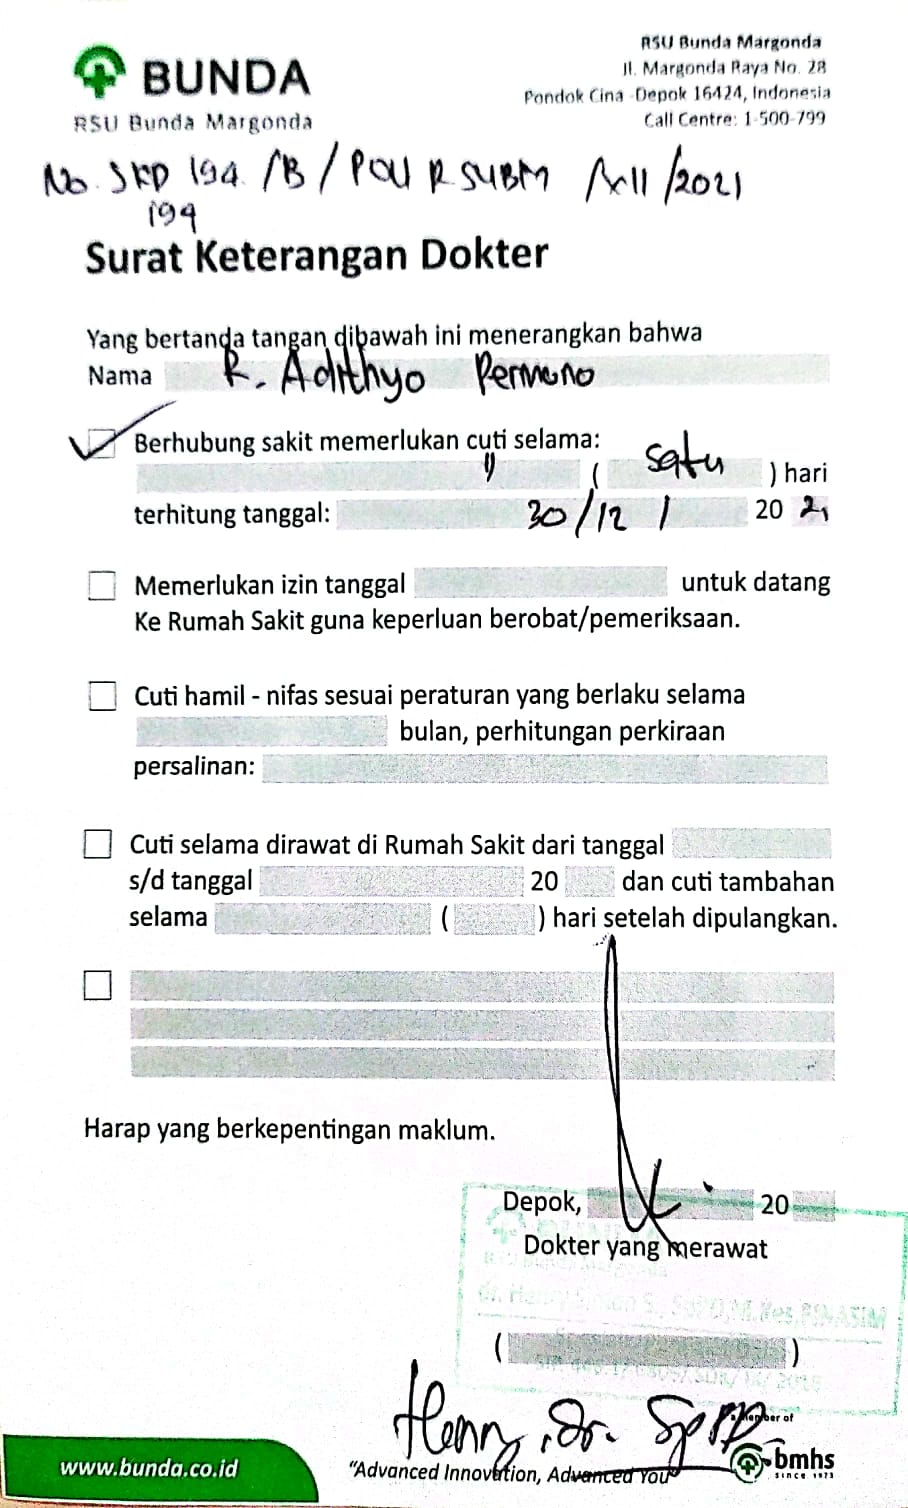 BUNDA
RSU Bunda Margonda
RSU Bunda Margonda
Jl. Margonda Raya No. 28
Pondok Cina -Depok 16424, Indonesia
Call Centre: 1-500-799
No. SKD 194 /B / POU RSUBM /XII /2021
194
Surat Keterangan Dokter
Yang bertanda tangan dibawah ini menerangkan bahwa
Nama R. Adithyo Permono
Berhubung sakit memerlukan cuti selama:
( satu ) hari
terhitung tanggal: 30/12 / 20 21
Memerlukan izin tanggal untuk datang
Ke Rumah Sakit guna keperluan berobat/pemeriksaan.
Cuti hamil - nifas sesuai peraturan yang berlaku selama
bulan, perhitungan perkiraan
persalinan:
Cuti selama dirawat di Rumah Sakit dari tanggal
s/d tanggal 20 dan cuti tambahan
selama ( ) hari setelah dipulangkan.
Harap yang berkepentingan maklum.
Depok, 20
Dokter yang merawat
RSU Bunda Margonda
dr. Henry S., SpPD,M.Kes,FINASIM
( )
Henry, dr. SpPD
www.bunda.co.id
"Advanced Innovation, Advanced You"
a member of
bmhs
SINCE 1973